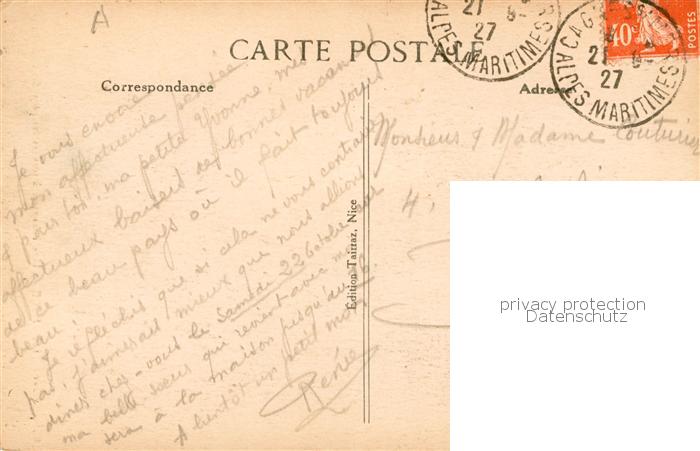 A
CARTE POSTALE
Correspondance
Adresse
40c
POSTES
CAGNES
21
27
ALPES MARITIMES
21
27
ALPES MARITIMES
Je vous envoie
mon affectueuse pensée
& pour toi, ma petite Yvonne, mes
affectueux baisers de bonnes vacances
de ce beau pays où il fait toujours
beau.
Je réfléchis que si cela ne vous contrarie
pas, j'aimerais mieux que nous allions
dîner chez-vous le Samedi 22 Octobre car
ma belle sœur qui revient avec moi
sera à la maison jusqu'au 26
A bientôt un petit mot
Renée
Édition Tairraz, Nice
Monsieur & Madame Couturier
4,
privacy protection
Datenschutz